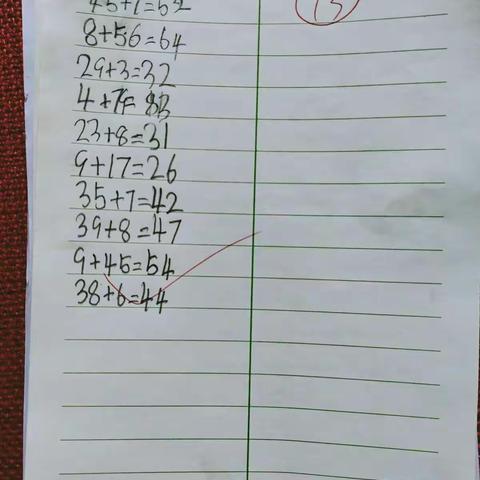 45+7=52
13
8+56=64
29+3=32
4+79=83
23+8=31
9+17=26
35+7=42
39+8=47
9+45=54
38+6=44